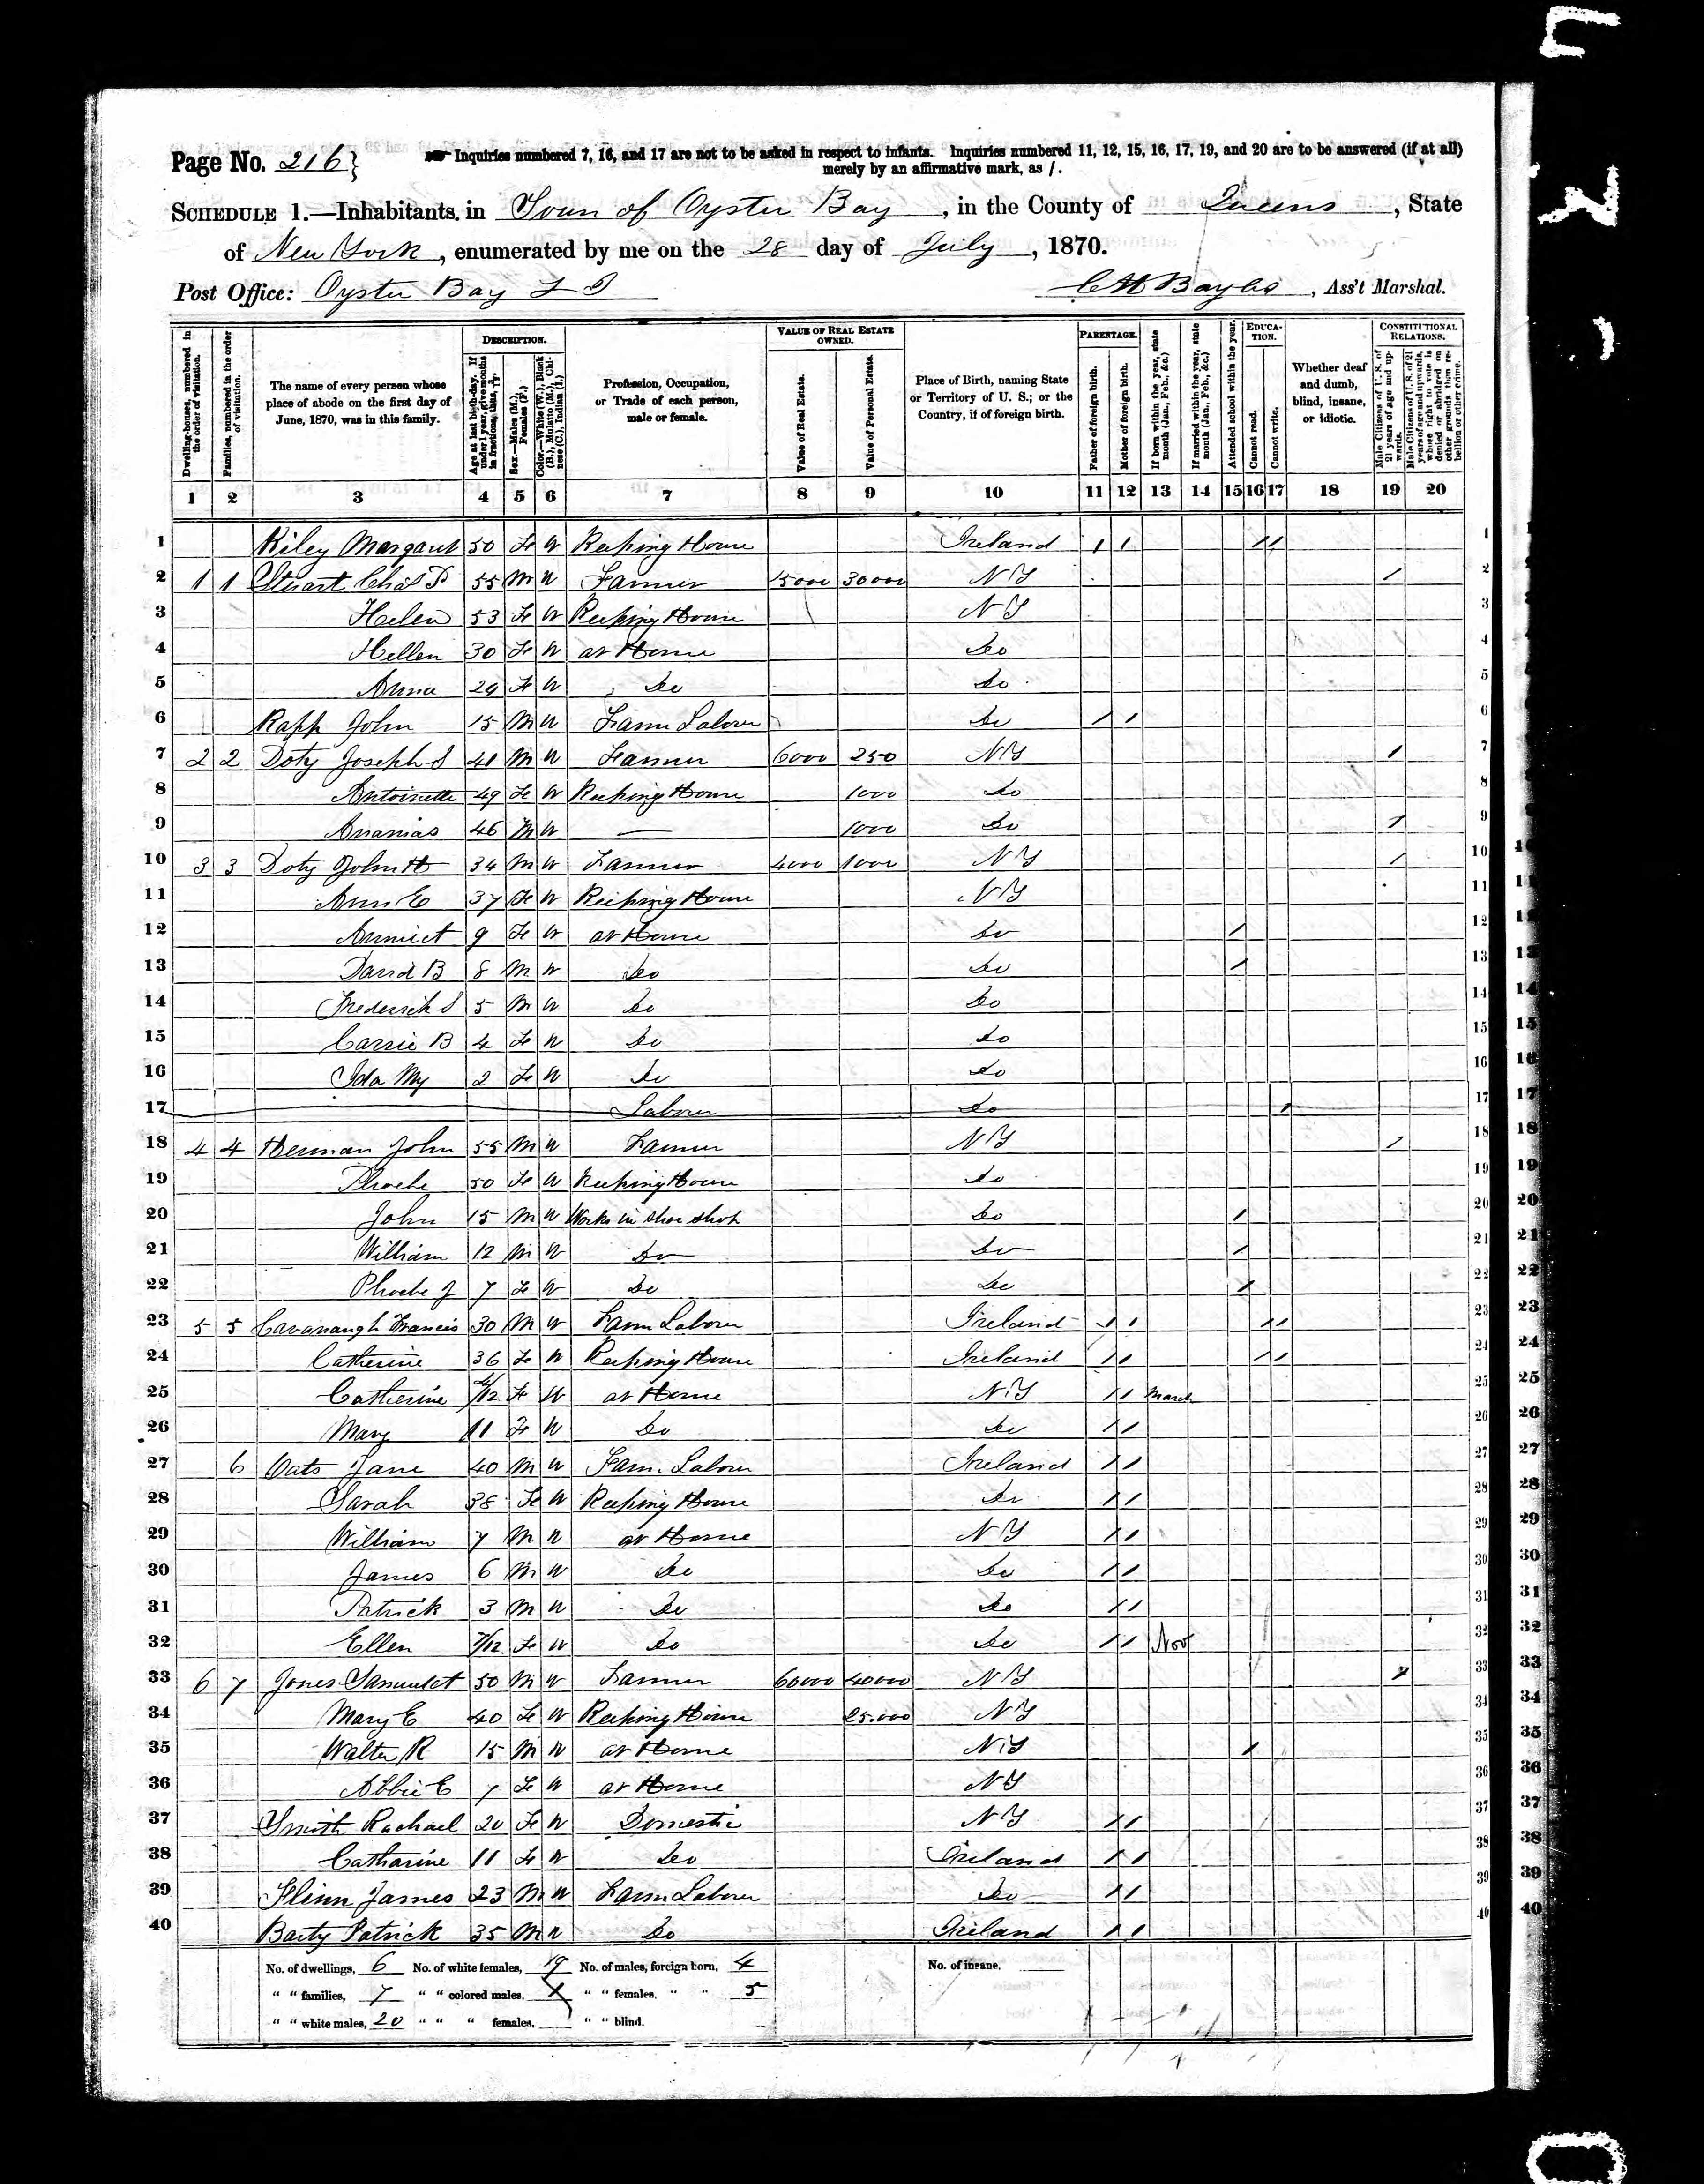 Page No. 216} Inquiries numbered 7, 16, and 17 are not to be asked in respect to infants. Inquiries numbered 11, 12, 15, 16, 17, 19, and 20 are to be answered (if at all)
merely by an affirmative mark, as /.
SCHEDULE 1.—Inhabitants in Town of Oyster Bay, in the County of Queens, State
of New York, enumerated by me on the 28 day of July, 1870.
Post Office: Oyster Bay L I C H Bayles, Ass't Marshal.
Dwelling-houses, numbered in the order of visitation.
Families, numbered in the order of visitation.
The name of every person whose place of abode on the first day of June, 1870, was in this family.
DESCRIPTION.
Age at last birth-day. If under 1 year, give months in fractions, thus, 3/12.
Sex.—Males (M.), Females (F.)
Color.—White (W.), Black (B.), Mulatto (M.), Chinese (C.), Indian (I.)
Profession, Occupation, or Trade of each person, male or female.
VALUE OF REAL ESTATE OWNED.
Value of Real Estate.
Value of Personal Estate.
Place of Birth, naming State or Territory of U. S.; or the Country, if of foreign birth.
PARENTAGE.
Father of foreign birth.
Mother of foreign birth.
If born within the year, state month (Jan., Feb., &c.)
If married within the year, state month (Jan., Feb., &c.)
Attended school within the year.
EDUCATION.
Cannot read.
Cannot write.
Whether deaf and dumb, blind, insane, or idiotic.
CONSTITUTIONAL RELATIONS.
Male Citizens of U. S. of 21 years of age and upwards.
Male Citizens of U. S. of 21 years of age and upwards, whose right to vote is denied or abridged on other grounds than rebellion or other crime.
1 2 3 4 5 6 7 8 9 10 11 12 13 14 15 16 17 18 19 20
1 Riley Margaret 50 Fe W Keeping House Ireland / / / / 1
2 1 1 Stuart Chas 55 M W Farmer 15000 30000 N Y / 2
3 Helen 53 Fe W Keeping House N Y 3
4 Hellen 30 Fe W at Home Do 4
5 Anna 29 Fe W Do Do 5
6 Rapp John 15 M W Farm Laborer Do / / 6
7 2 2 Doty Joseph S 41 M W Farmer 6000 250 N Y / 7
8 Antoinette 49 Fe W Keeping House 1000 Do 8
9 Ananias 46 M W — 1000 Do / 9
10 3 3 Doty John H 34 M W Farmer 4000 1000 N Y / 10
11 Ann E 37 Fe W Keeping House N Y 11
12 9 Fe W at Home Do / 12
13 David B 8 M W Do Do / 13
14 Frederick S 5 M W Do Do 14
15 Carrie B 4 Fe W Do Do 15
16 Ida My 2 Fe W Do Do 16
17 Laborer Do / 17
18 4 4 Herman John 55 M W Farmer N Y / 18
19 Phoebe 50 Fe W Keeping House Do 19
20 John 15 M W Works in Shoe Shop Do / 20
21 William 12 M W Do Do / 21
22 Phoebe J 7 Fe W Do Do / 22
23 5 5 Cavanaugh Francis 30 M W Farm Laborer Ireland / / / / 23
24 Catherine 36 Fe W Keeping House Ireland / / / / 24
25 Catherine /12 Fe W at Home N Y / / March 25
26 Mary 11 Fe W Do Do / / 26
27 6 Oats Jane 40 M W Farm Laborer Ireland / / 27
28 Sarah 38 Fe W Keeping House Do / / 28
29 William 7 M W at Home N Y / / 29
30 James 6 M W Do Do / / 30
31 Patrick 3 M W Do Do / / 31
32 Ellen 7/12 Fe W Do Do / / Nov 32
33 6 7 Jones 50 M W Farmer 60000 40000 N Y / 33
34 Mary E 40 Fe W Keeping House 25.000 N Y 34
35 Walter R 15 M W at Home N Y / 35
36 Abbie E 7 Fe W at Home N Y 36
37 Smith Rachael 20 Fe W Domestic N Y / / 37
38 Catharine 11 Fe W Do Ireland / / 38
39 Flinn James 23 M W Farm Laborer Do / / 39
40 Barty Patrick 35 M W Do Ireland / / 40
No. of dwellings, 6 No. of white females, 19 No. of males, foreign born, 4 No. of insane,
" " families, 7 " " colored males, " " females, " " 5
" " white males, 20 " " " females, " " blind.